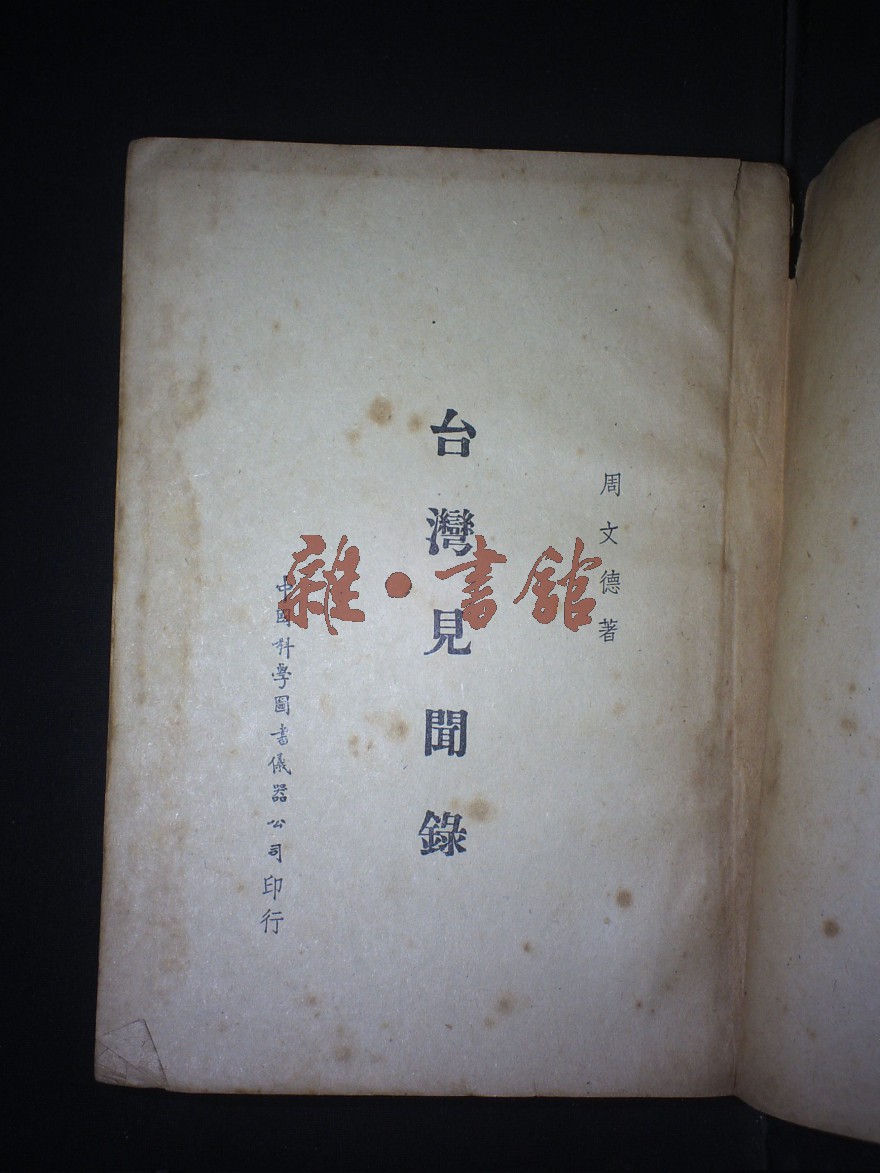 周文德著
台灣見聞錄
中國科學圖書儀器公司印行
雜·書館